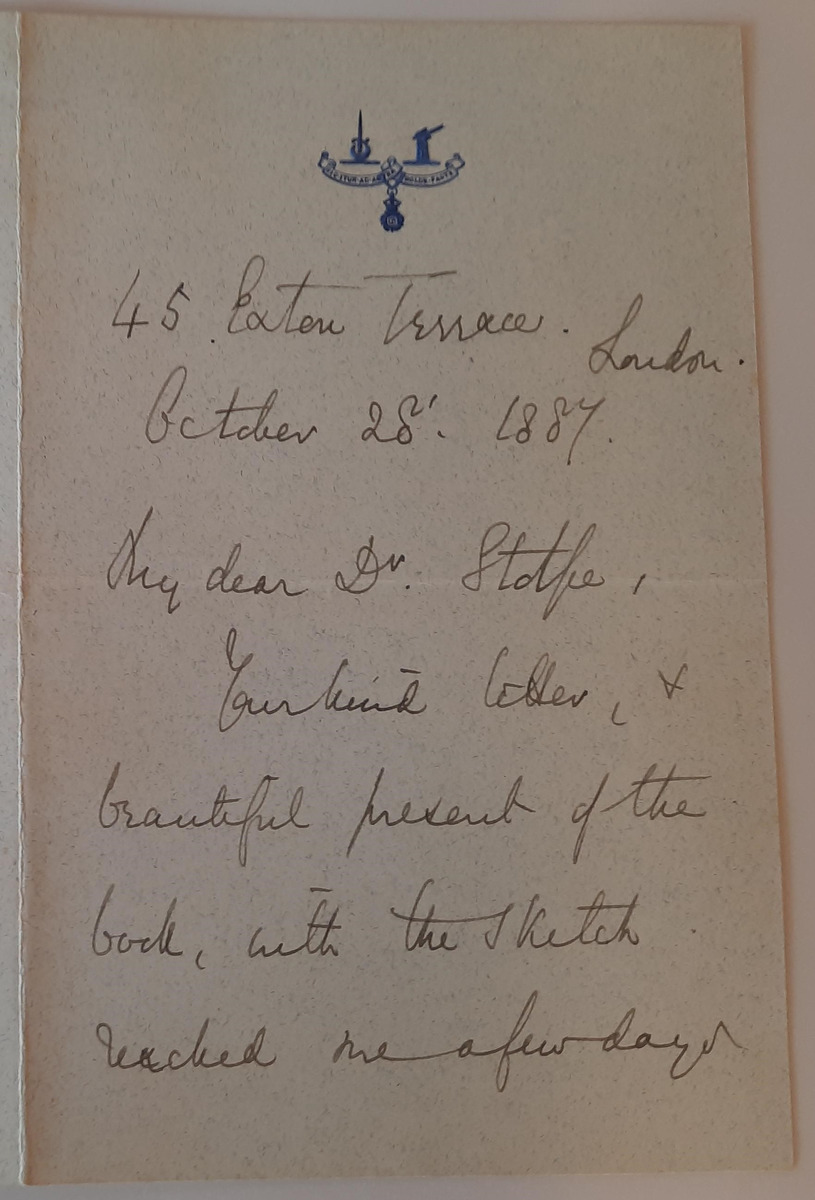 45 Eaton Terrace.
London.
October 28'. 1887.
My dear Dr. Stolpe,
Your kind letter, &
beautiful present of the
book, with the sketch
reached me a few days